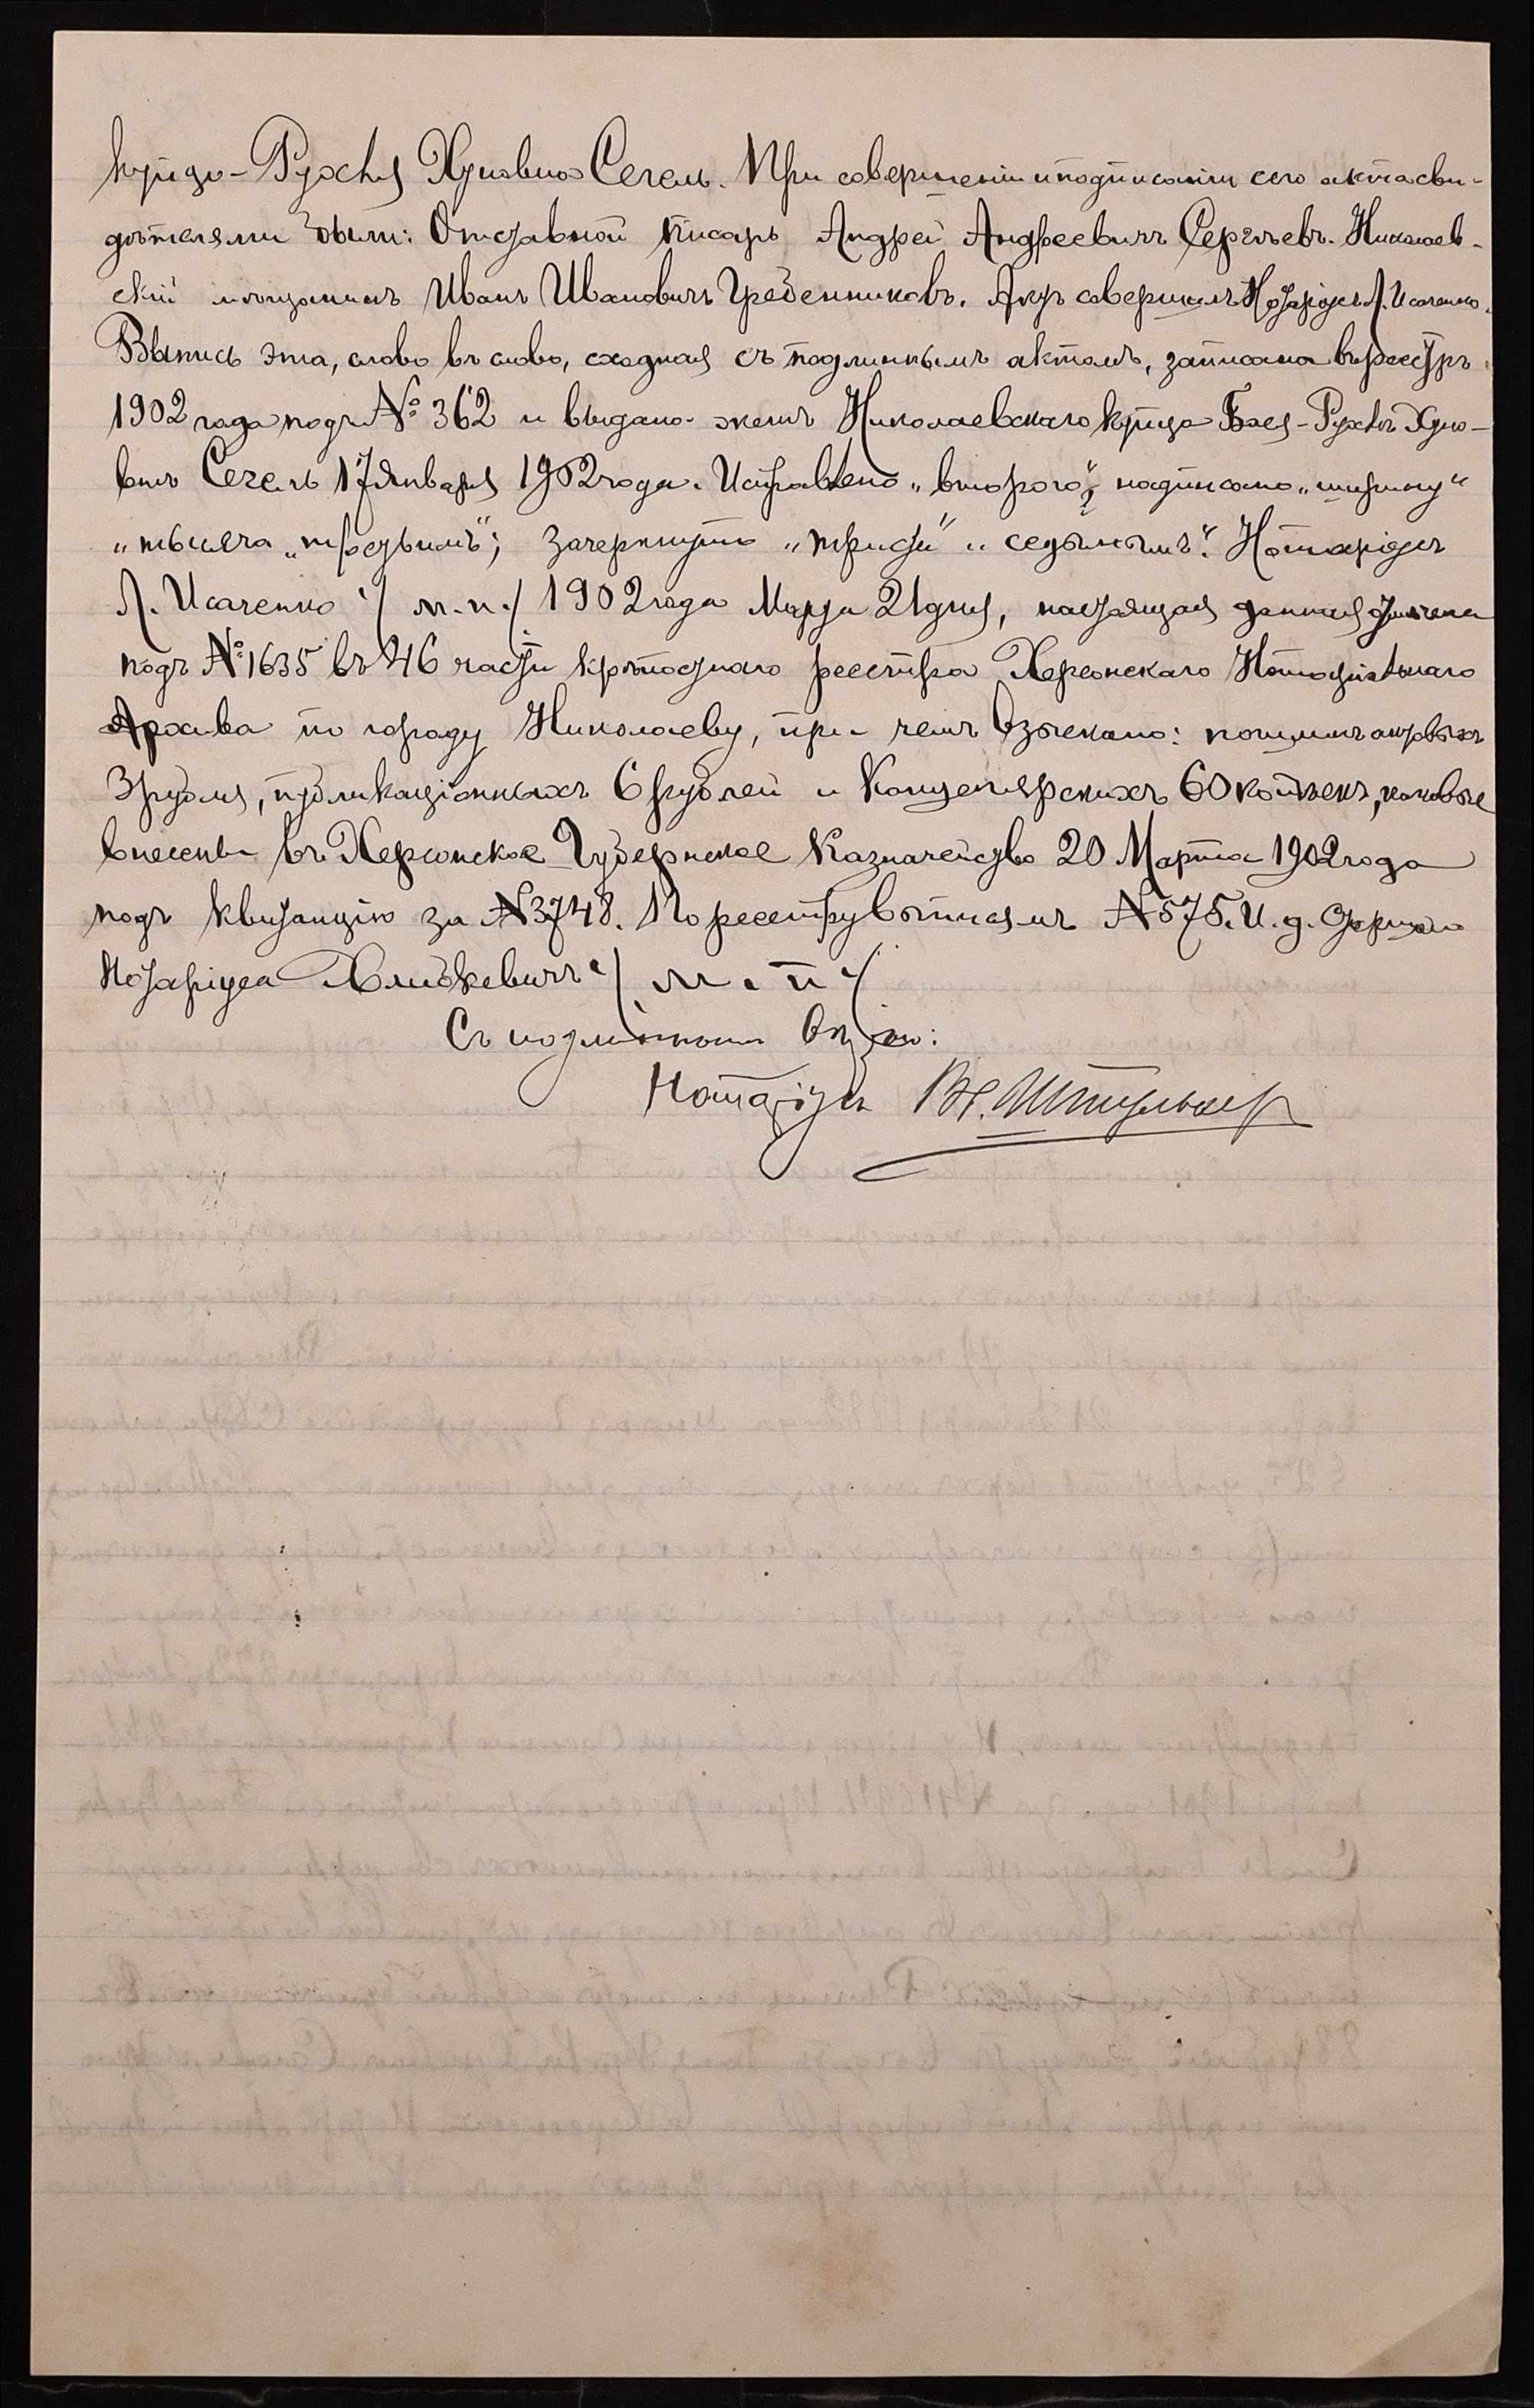 купца - Рухля Хуновна Сегель. При совершеніи и подписаніи сего акта сви-
дѣтелями были: Отставной писарь Андрей Андреевичъ Сергѣевъ. Николаев-
скій мѣщанинъ Иванъ Ивановичъ Гребенниковъ. Актъ совершалъ Нотаріусъ Л. Исаченко.
Выпись эта, слово въ слово, сходная съ подлиннымъ актомъ, записана въ реестръ
1902 года подъ № 362 и выдана женѣ Николаевскаго купца Баѣ-Рухлѣ Хуно-
внѣ Сегель 17 Января 1902 года. Исправлено „второго", надписано „ширину"
„тысяча „тростьимъ"; зачеркнуто „тристи" „седьмымъ". Нотаріусъ
Л. Исаченко / м.п./ 1902 года Марта 21 дня, настоящая данная отмѣчена
подъ № 1635 въ 46 части крѣпостного реестра Херсонскаго Нотаріальнаго
Архива по городу Николаеву, при чемъ взыскано: пошлинъ актовыхъ
3 рубля, публикаціонныхъ 6 рублей и Канцелярскихъ 60 копѣекъ, каковые
внесены въ Херсонское Губернское Казначейство 20 Марта 1902 года
подъ квитанцію за № 3748. По реестру выписямъ № 575. И. д. Старшаго
Нотаріуса / м. п /
Съ подлиннымъ вѣрно:
Нотаріусъ